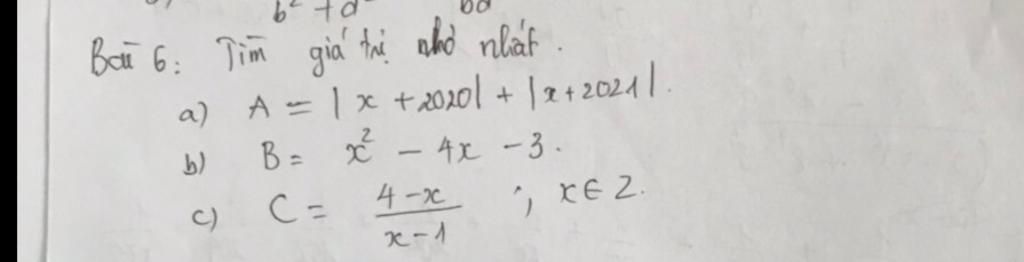 b² + d² bd
Bài 6: Tìm giá trị nhỏ nhất.
a) A = |x + 2020| + |x + 2021|.
b) B = x² - 4x - 3.
c) C = \frac{4-x}{x-1} ; x ∈ Z.